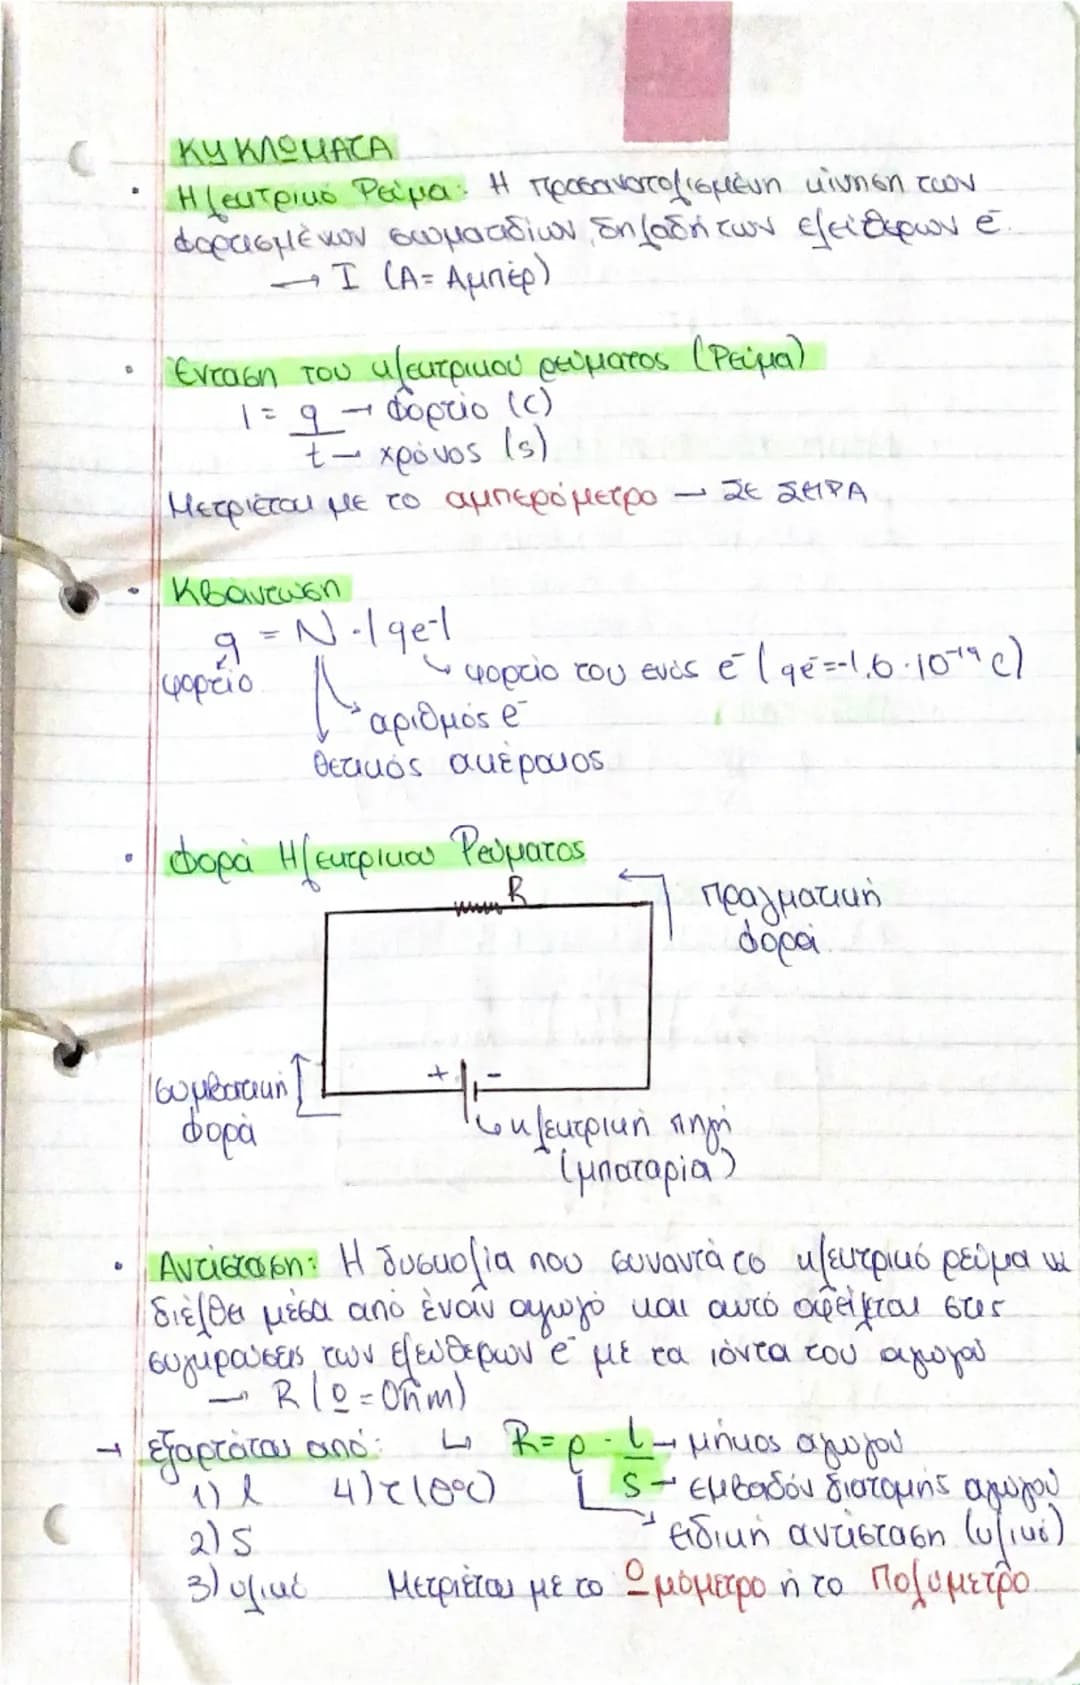 ΚΥΚΛΩΜΑΤΑ
• Ηλεκτρικό Ρεύμα: Η προσανατολισμένη κίνηση των
φορτισμένων σωματιδίων, δηλαδή των ελεύθερων e⁻.
→ I (A = Αμπέρ)
• Ένταση του ηλεκτρικού ρεύματος (Ρεύμα)
I = q → φορτίο (C)
t → χρόνος (s)
Μετριέται με το αμπερόμετρο → ΣΕ ΣΕΙΡΑ
• Κβάντωση
q = N · |qe⁻|
φορτίο → φορτίο του ενός e⁻ (qe⁻ = -1,6 · 10⁻¹⁹ C)
αριθμός e⁻
θετικός ακέραιος
• Φορά Ηλεκτρικού Ρεύματος
R
πραγματική
φορά
+ -
συμβατική
φορά
ηλεκτρική πηγή
(μπαταρία)
• Αντίσταση: Η δυσκολία που συναντά το ηλεκτρικό ρεύμα να
διέλθει μέσα από έναν αγωγό και αυτό οφείλεται στις
συγκρούσεις των ελεύθερων e⁻ με τα ιόντα του αγωγού
→ R (Ω = Ohm)
→ εξαρτάται από: ↳ R = ρ · l → μήκος αγωγού
1) l 4) τ (θ°C) S → εμβαδόν διατομής αγωγού
2) S → ειδική αντίσταση (υλικό)
3) υλικό Μετριέται με το Ωμόμετρο ή το Πολύμετρο